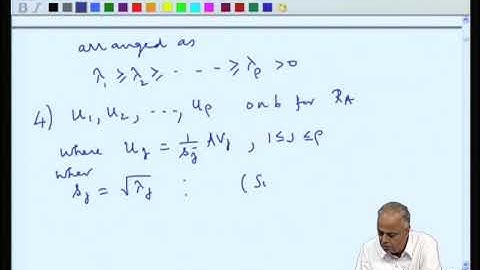 arranged as
λ₁ ≥ λ₂ ≥ - - - ≥ λρ > 0
4) u₁, u₂, ..., uρ onb for R_A
where u_j = 1/s_j A v_j , 1 ≤ j ≤ ρ
wher
s_j = √λ_j : (S₁